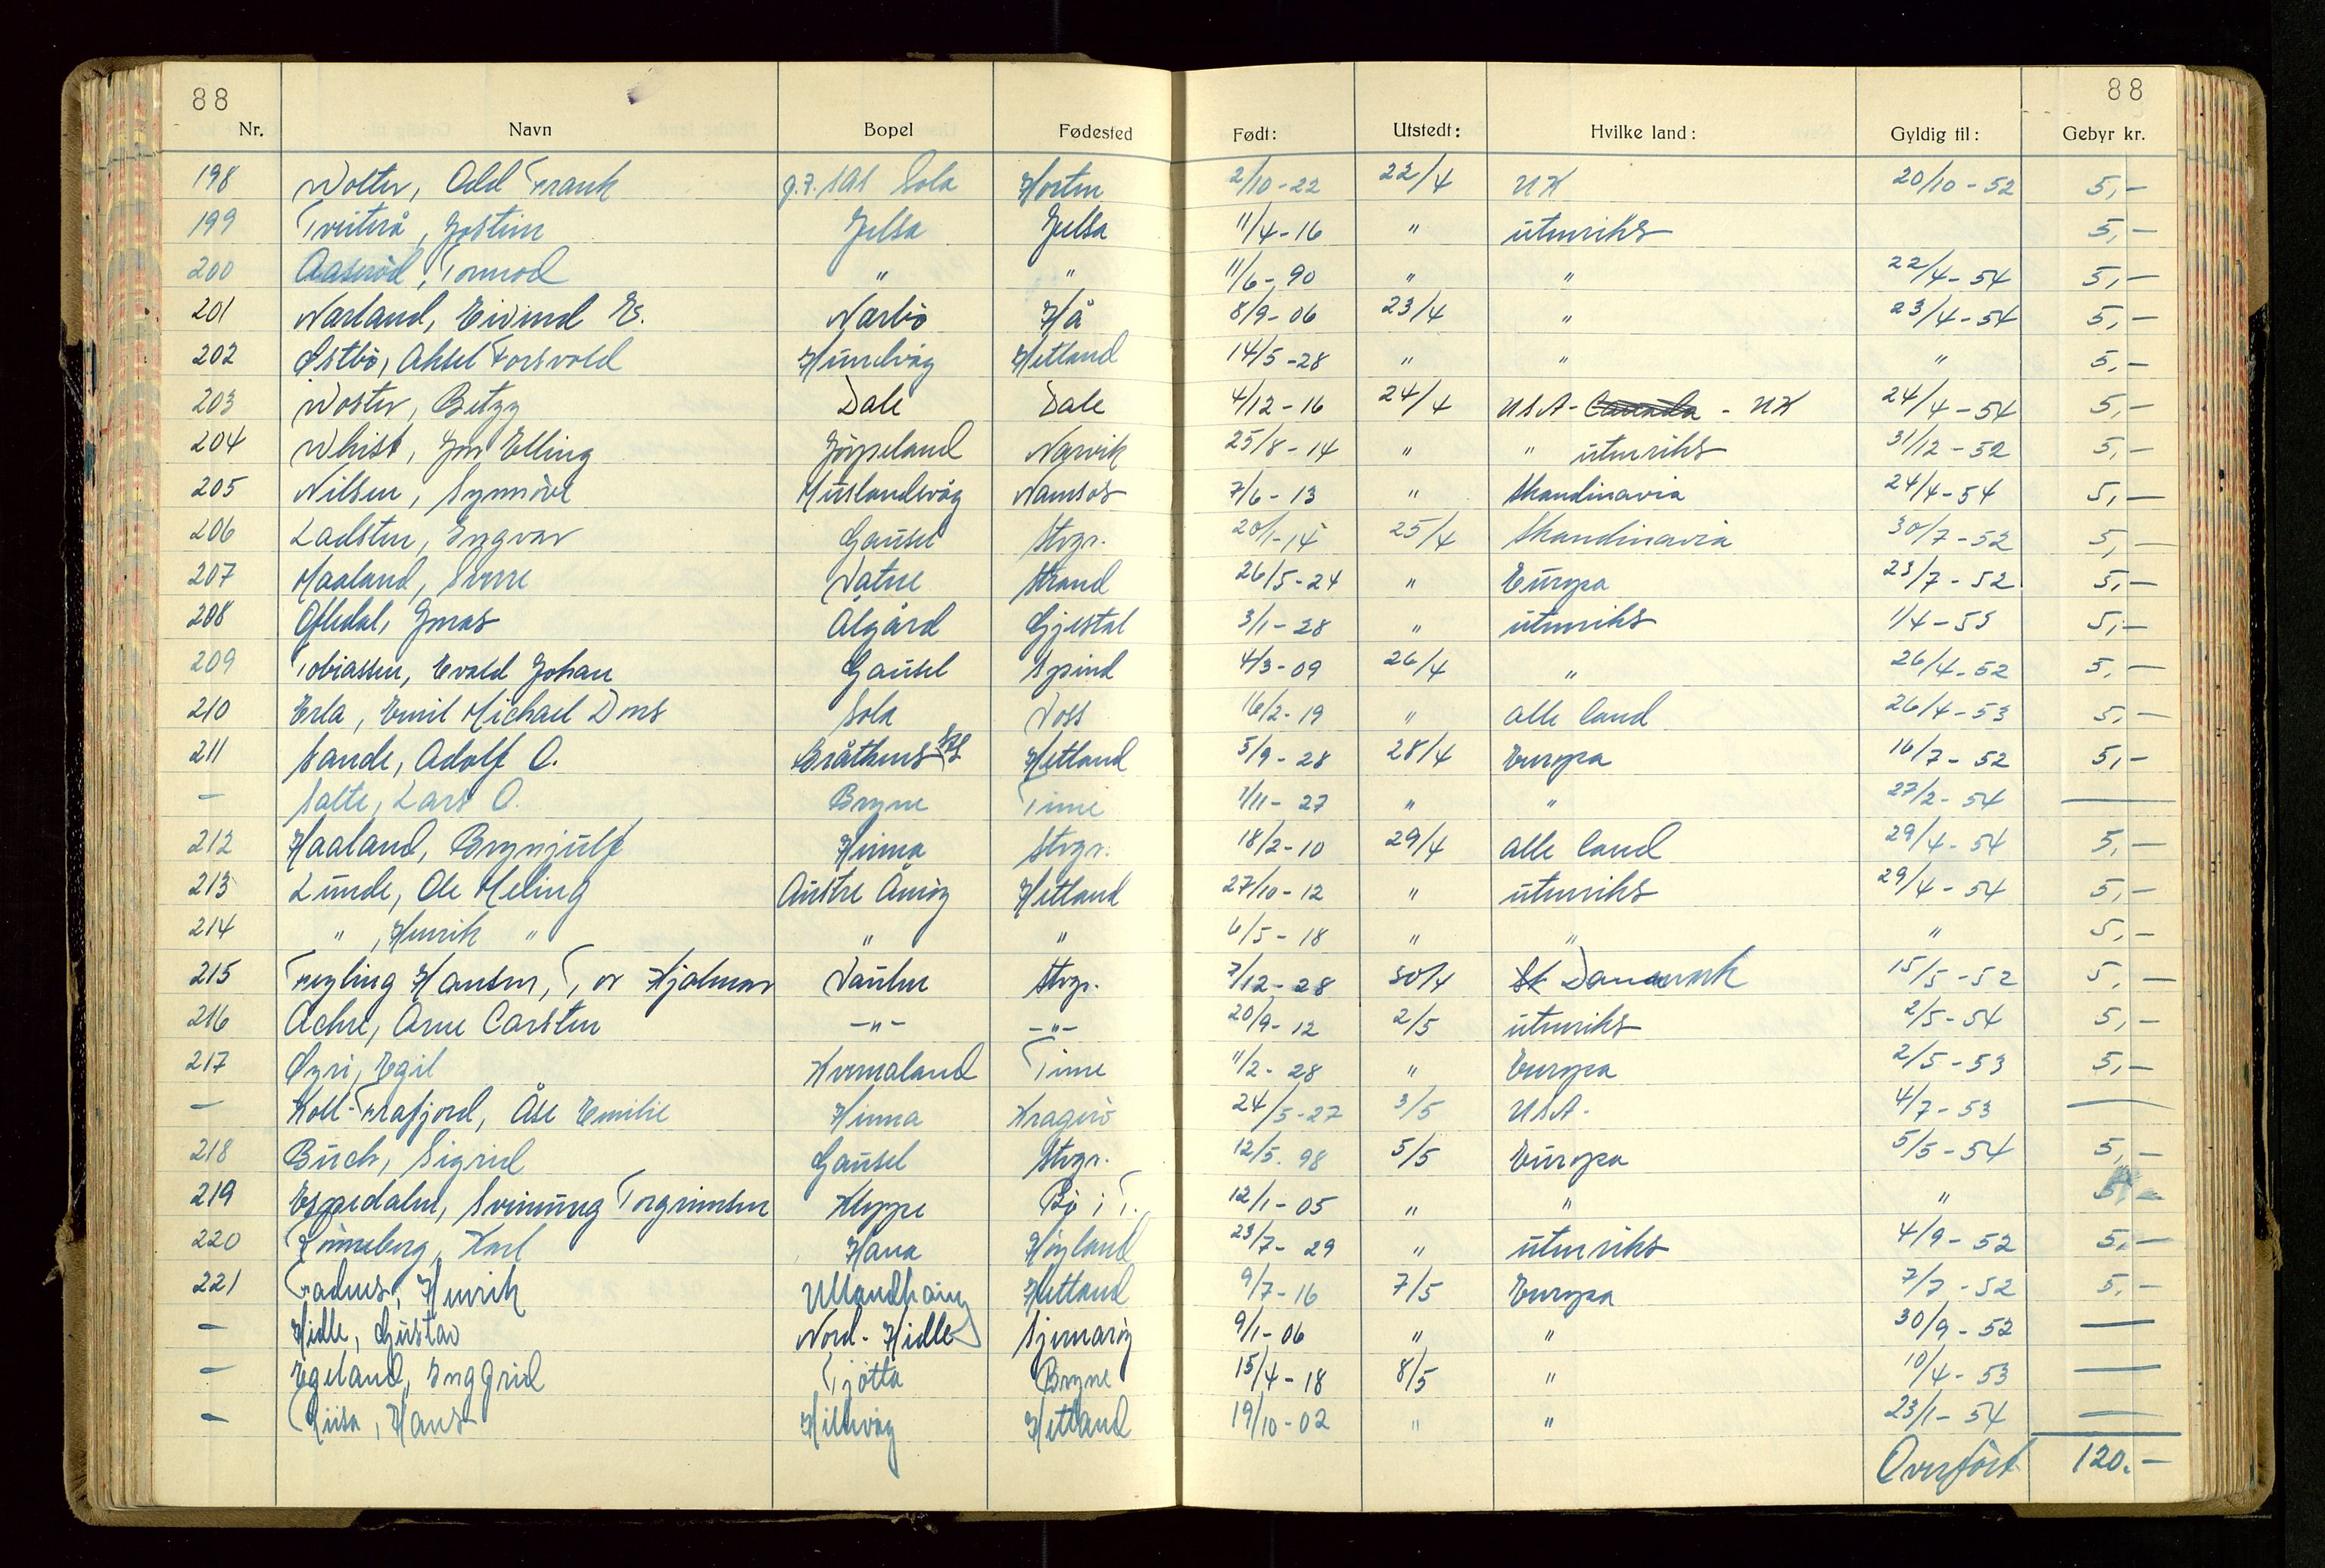 88 88
Nr. Navn Bopel Fødested Født: Utstedt: Hvilke land: Gyldig til: Gebyr kr.
198 Wolter, Odd Frank p.t. SAS Sola Horten 2/10-22 22/4 UK 20/10-52 5,-
199 Tveiterå, Jostein Jelsa Jelsa 11/4-16 " utenriks 5,-
200 Aaserød, Tormod " " 11/6-90 " " 22/4-54 5,-
201 Narland, Eivind E. Nærbö Hå 8/9-06 23/4 " 23/4-54 5,-
202 Østbö, Aksel Torsvold Hundvåg Hetland 14/5-28 " " " 5,-
203 Woster, Betzy Dale Dale 4/12-16 24/4 USA - Canada - UK 24/4-54 5,-
204 Whist, Jon Elling Jörpeland Narvik 25/8-14 " " utenriks 31/12-52 5,-
205 Nilsen, Synnöve Huslandsvåg Namsos 7/6-13 " Skandinavia 24/4-54 5,-
206 Ladsten, Ingvar Gausel Stvgr. 20/1-14 25/4 Skandinavia 30/7-52 5,-
207 Maaland, Sverre Vatne Strand 26/5-24 " Europa 23/7-52 5,-
208 Oftedal, Jonas Ålgård Gjestal 3/1-28 " utenriks 1/4-53 5,-
209 Tobiassen, Evald Johan Gausel Spind 4/3-09 26/4 " 26/4-52 5,-
210 Erla, Emil Michael Dons Sola Voss 16/2-19 " alle land 26/4-53 5,-
211 Sande, Adolf O. Bråthens Hetland 5/9-28 28/4 Europa 16/7-52 5,-
- Salte, Lars O. Bryne Time 1/11-27 " " 27/2-54 —
212 Haaland, Brynjulf Hinna Stvgr. 18/2-10 29/4 alle land 29/4-54 5,-
213 Lunde, Ole Meling Austre Åmöy Hetland 27/10-12 " utenriks 29/4-54 5,-
214 ", Henrik " " " 6/5-18 " " " 5,-
215 Fregling Hansen, Tor Hjalmar Vaulen Stvgr. 7/12-28 30/4 Sk Danmark 15/5-52 5,-
216 Achre, Arne Carsten -"- -"- 20/9-12 2/5 utenriks 2/5-54 5,-
217 Øyri, Egil Kvernaland Time 11/2-28 " Europa 2/5-53 5,-
- Koll-Frafjord, Åse Emilie Hinna Kragerö 24/5-27 3/5 USA- 4/7-53 —
218 Buch, Sigrid Gausel Stvgr. 12/5.98 5/5 Europa 5/5-54 5,-
219 Espedalen, Sveinung Torgrimsen Kleppe Bö i T. 12/1-05 " " " 5,-
220 Rönneberg, Karl Hana Höyland 23/7-29 " utenriks 4/9-52 5,-
221 Fadnes, Henrik Ullandhaug Hetland 9/7-16 7/5 Europa 7/7-52 5,-
- Hidle, Gustav Nord-Hidle Sjernaröy 9/1-06 " " 30/9-52 —
- Egeland, Inggrid Tjötta Bryne 15/4-18 8/5 " 10/4-53 —
- Riisa, Hans Hillevåg Hetland 19/10-02 " " 23/1-54 —
Overfört 120.-